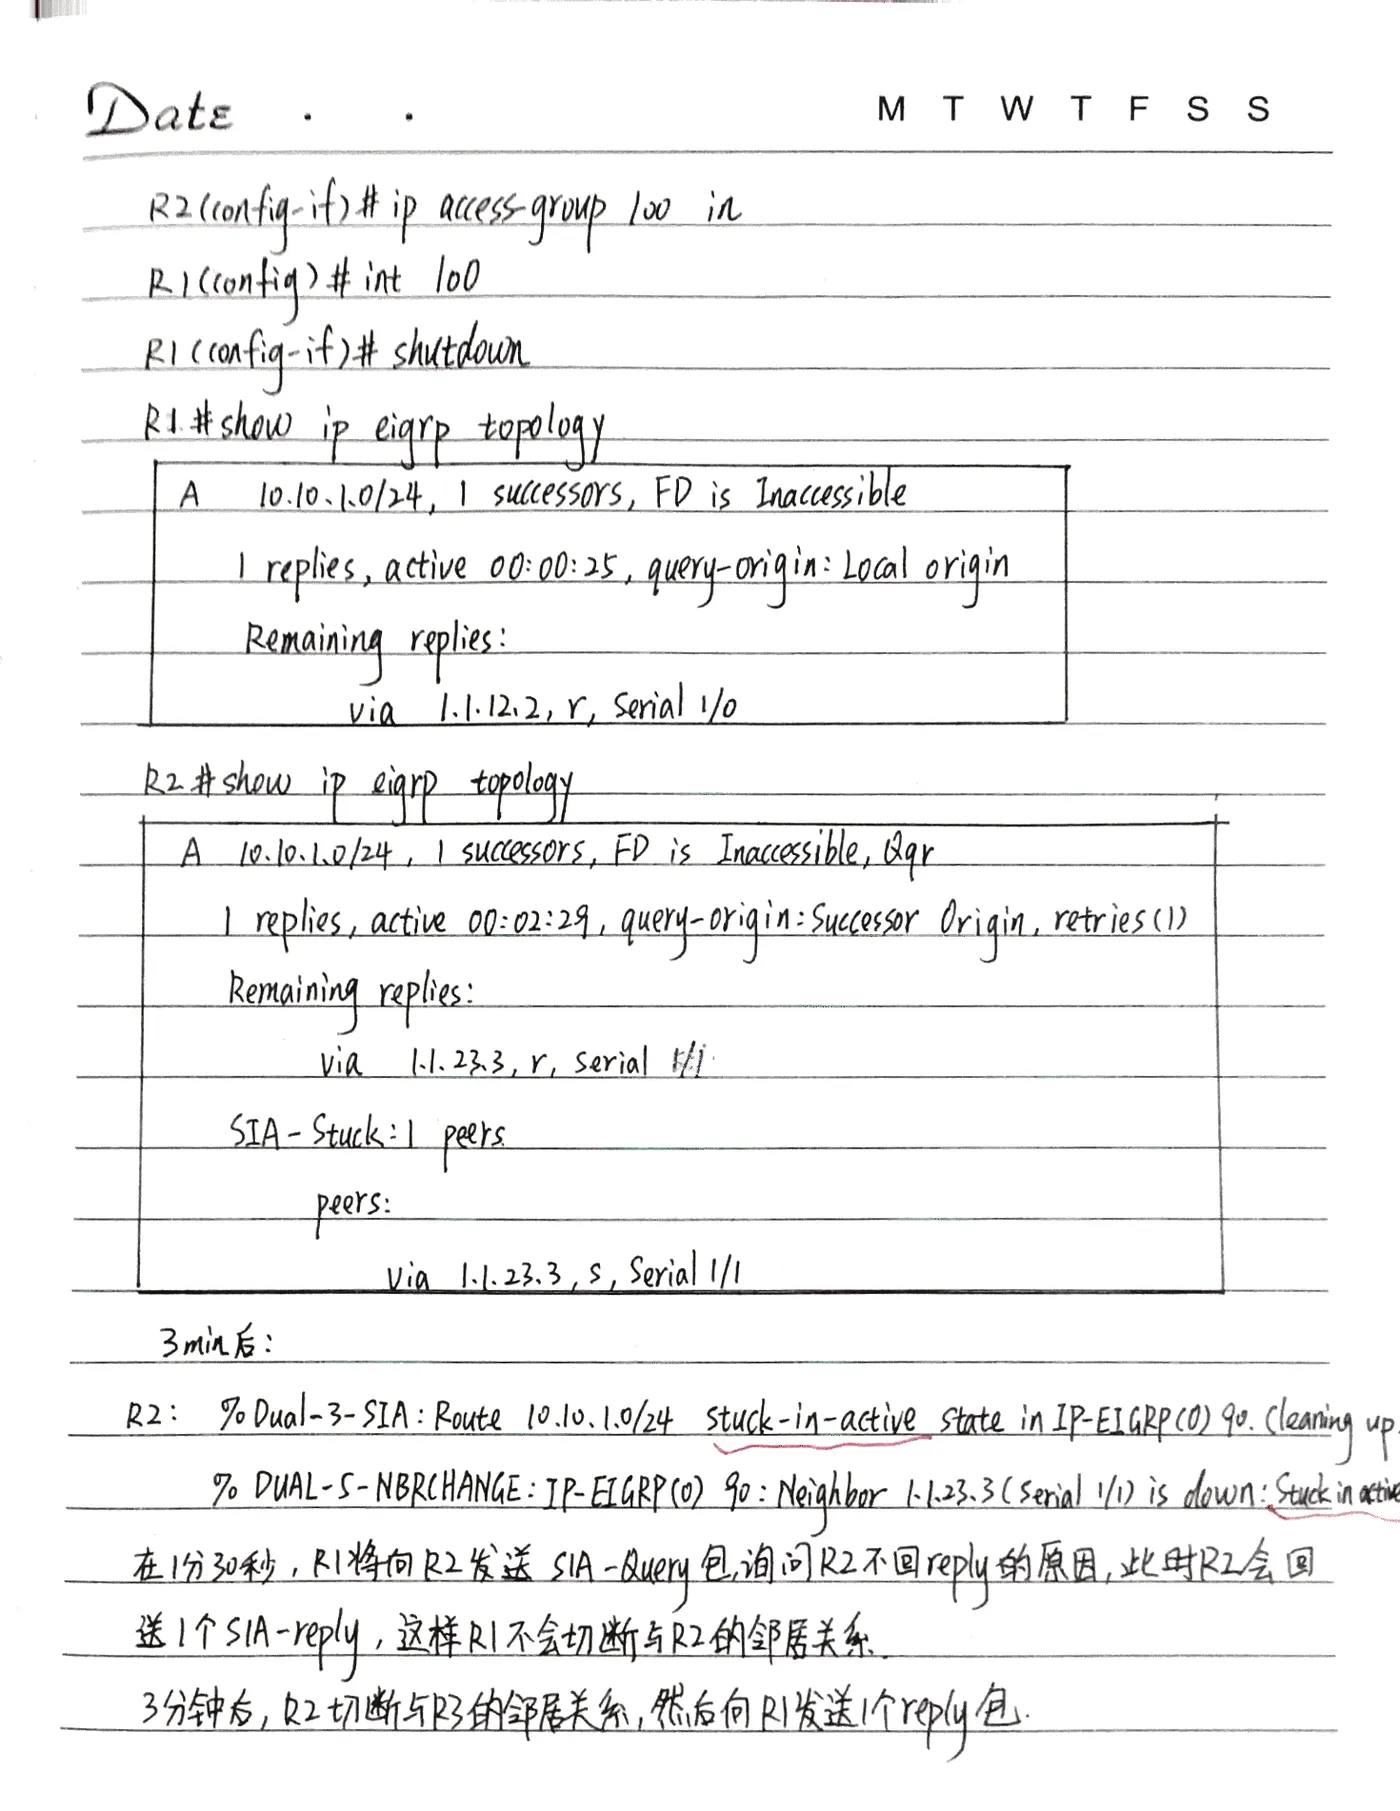 Date . .
M T W T F S S
R2(config-if)# ip access-group 100 in
R1(config)# int lo0
R1(config-if)# shutdown
R1#show ip eigrp topology
A 10.10.1.0/24, 1 successors, FD is Inaccessible
1 replies, active 00:00:25, query-origin: Local origin
Remaining replies:
via 1.1.12.2, r, Serial 1/0
R2#show ip eigrp topology
A 10.10.1.0/24, 1 successors, FD is Inaccessible, Qqr
1 replies, active 00:02:29, query-origin: Successor Origin, retries(1)
Remaining replies:
via 1.1.23.3, r, Serial 1/1
SIA-Stuck: 1 peers
peers:
via 1.1.23.3, s, Serial 1/1
3min后:
R2: %Dual-3-SIA: Route 10.10.1.0/24 stuck-in-active state in IP-EIGRP(0) 90. Cleaning up.
% DUAL-5-NBRCHANGE: IP-EIGRP(0) 90: Neighbor 1.1.23.3 (Serial 1/1) is down: Stuck in active
在1分30秒, R1将向R2发送 SIA-Query包,询问R2不回reply的原因,此时R2会回
送1个SIA-reply, 这样R1不会切断与R2的邻居关系.
3分钟后, R2切断与R3的邻居关系, 然后向R1发送1个reply包.